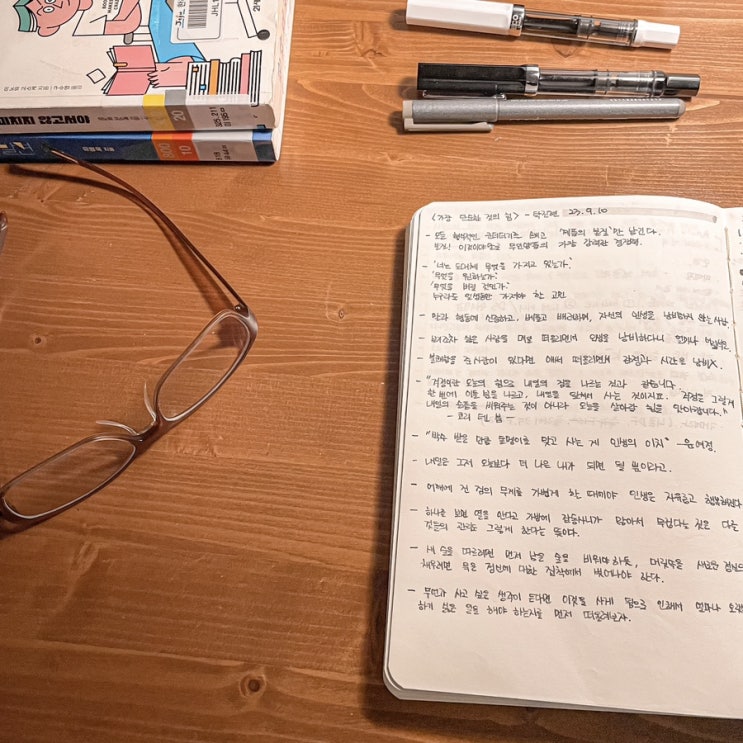 미치지 않고서야
20
800
10
<가장 단순한 것의 힘> - 탁진현 23.9.10
- 모든 형식적인 군더더기를 빼고 '사물의 본질'만 남긴다.
'너는 도대체 무엇을 가지고 있는가.'
'무엇을 원하는가.'
'무엇을 버릴 것인가.'
누구라도 인생동안 가져야 할 고민
- 말과 행동에 신중하고, 베풀고 배려하며, 자신의 인생을 낭비하지 않는 사람
- 보기조차 싫은 사람을 매일 떠올리면서 인생을 낭비하다니 얼마나
- 불쾌함을 준 사람이 있다면 애써 떠올리면서 감정과 시간을 낭비X.
- "걱정이란 오늘의 힘으로 내일의 짐을 나르는 것과 같습니다.
한 번에 이틀 짐을 나르고, 내일을 앞서서 사는 것이지요. 걱정은 그렇게
내일의 슬픔을 비워주는 것이 아니라 오늘을 살아갈 힘을 앗아갑니다."
- 코리 텐 붐 -
- "박수 받은 만큼 돌멩이로 맞고 사는 게 인생의 이치" - 윤여정.
- 내일은 그저 오늘보다 더 나은 내가 되면 될 뿐이라고.
- 어깨에 진 짐의 무게를 가볍게 한 대미야 인생은 자유롭고 행복해진다
- 하나를 보면 열을 안다고 가방에 잡동사니가 많아서 무겁다는 것은 다른
물건의 관리도 그렇게 한다는 뜻이다.
- 새 술을 따르려면 먼저 남은 술을 비워야 하듯, 머릿속을 새로운 정신으로
채우려면 묵은 정신에 대한 집착에서 벗어나야 한다.
- 무언가 사고 싶은 생각이 든다면 이것을 사게 됨으로 인해서 얼마나 오래
하기 싫은 일을 해야 하는지를 먼저 떠올려보자.